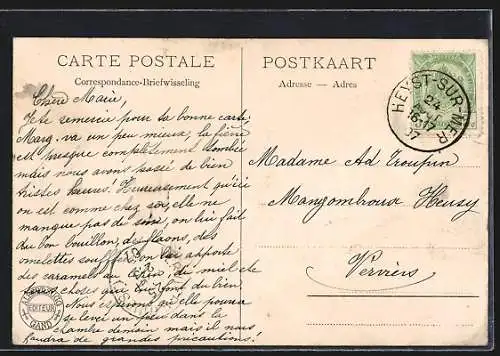 CARTE POSTALE
Correspondance-Briefwisseling
POSTKAART
Adresse — Adres
HEYST-SUR-MER
24
16-17
07
Chère Marie,
Je te remercie pour ta bonne carte,
Marg. va un peu mieux, la fièvre
est presque complètement tombée
mais nous avons passé de bien
tristes heures! Heureusement qu'ici
on est comme chez soi, elle ne
manque pas de soin, on lui fait
du bon bouillon, des flaons, des
omelettes soufflées on lui apporte
des caramels au citron, du miel
choses qui lui font du bien.
Nous espérons qu'elle pourra
se lever un peu dans le
chambre demain mais il nous
faudra de grandes précautions!
Madame Ad Troupin
Mangombroux Heusy
Verviers
EDITEUR
GAND